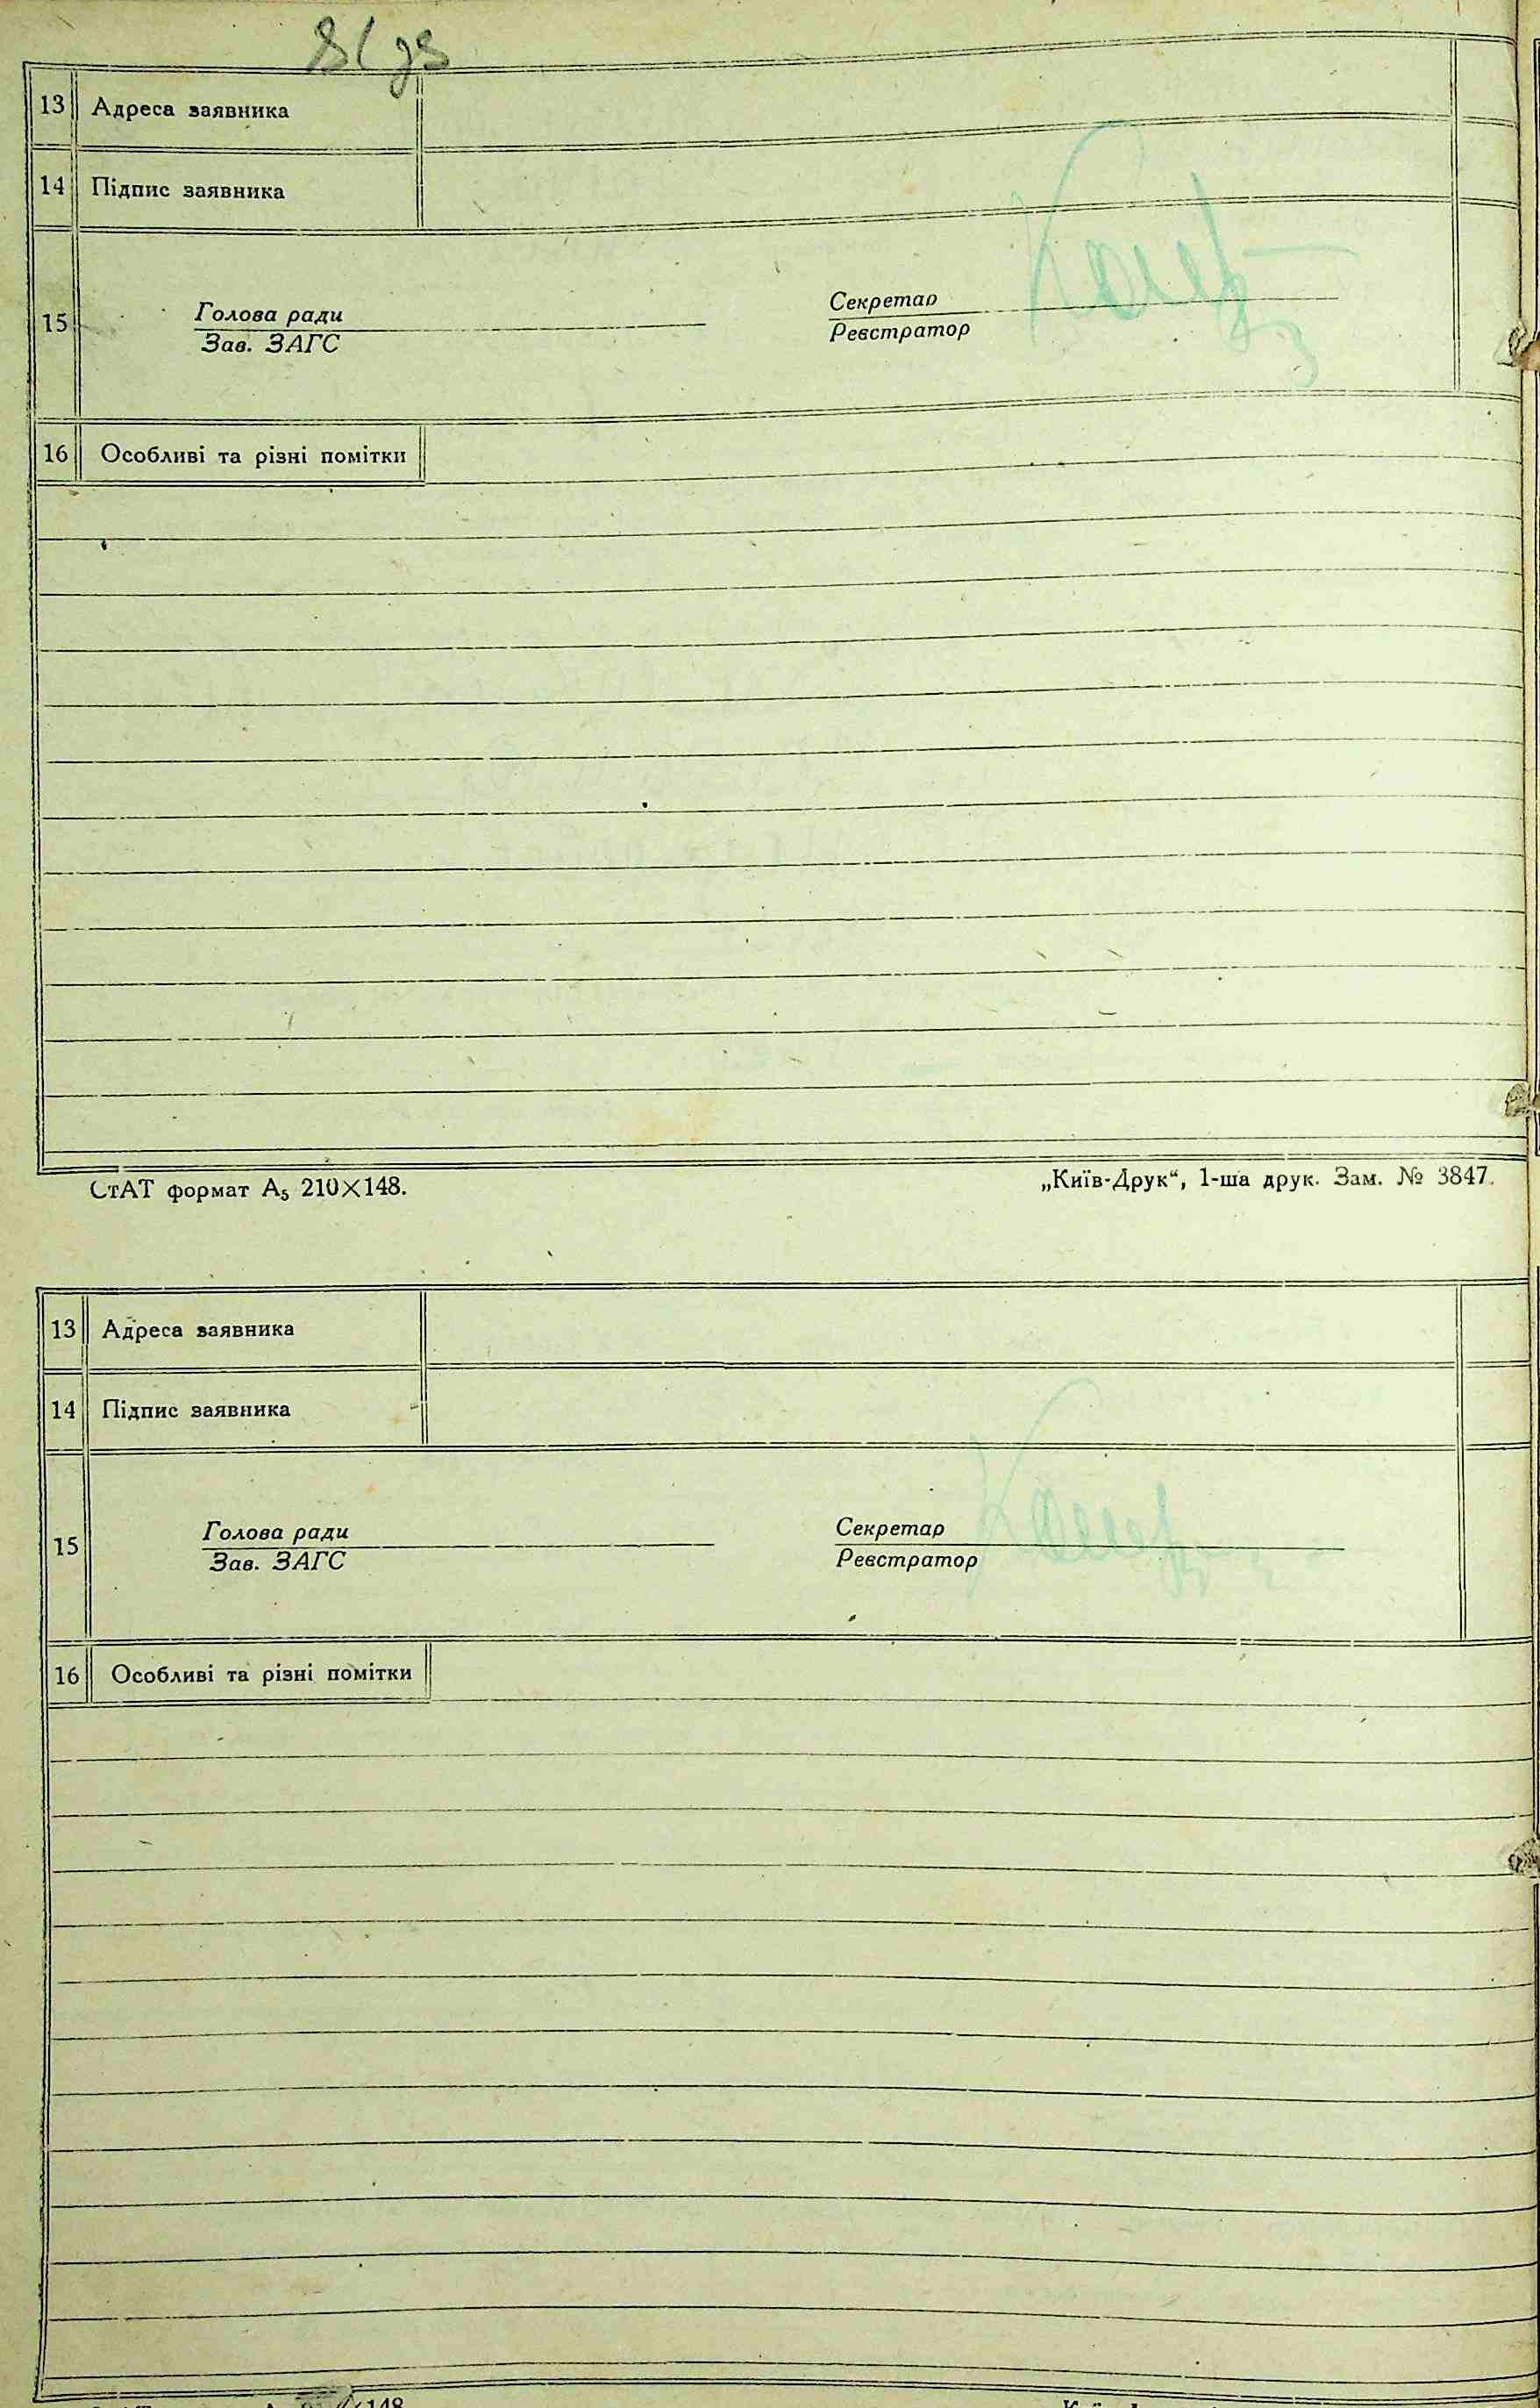 13 Адреса заявника
14 Підпис заявника
15 Голова ради Секретар
Зав. ЗАГС Реєстратор
16 Особливі та різні помітки
СтАТ формат А₅ 210×148. „Київ-Друк“, 1-ша друк. Зам. № 3847.
13 Адреса заявника
14 Підпис заявника
15 Голова ради Секретар
Зав. ЗАГС Реєстратор
16 Особливі та різні помітки